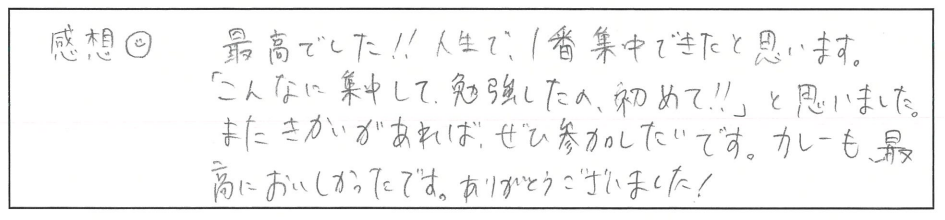 感想☺ 最高でした!! 人生で、1番集中できたと思います。
「こんなに集中して、勉強したの、初めて!!」と思いました。
またきかいがあれば、ぜひ参加したいです。カレーも、最
高においしかったです。ありがとうございました!